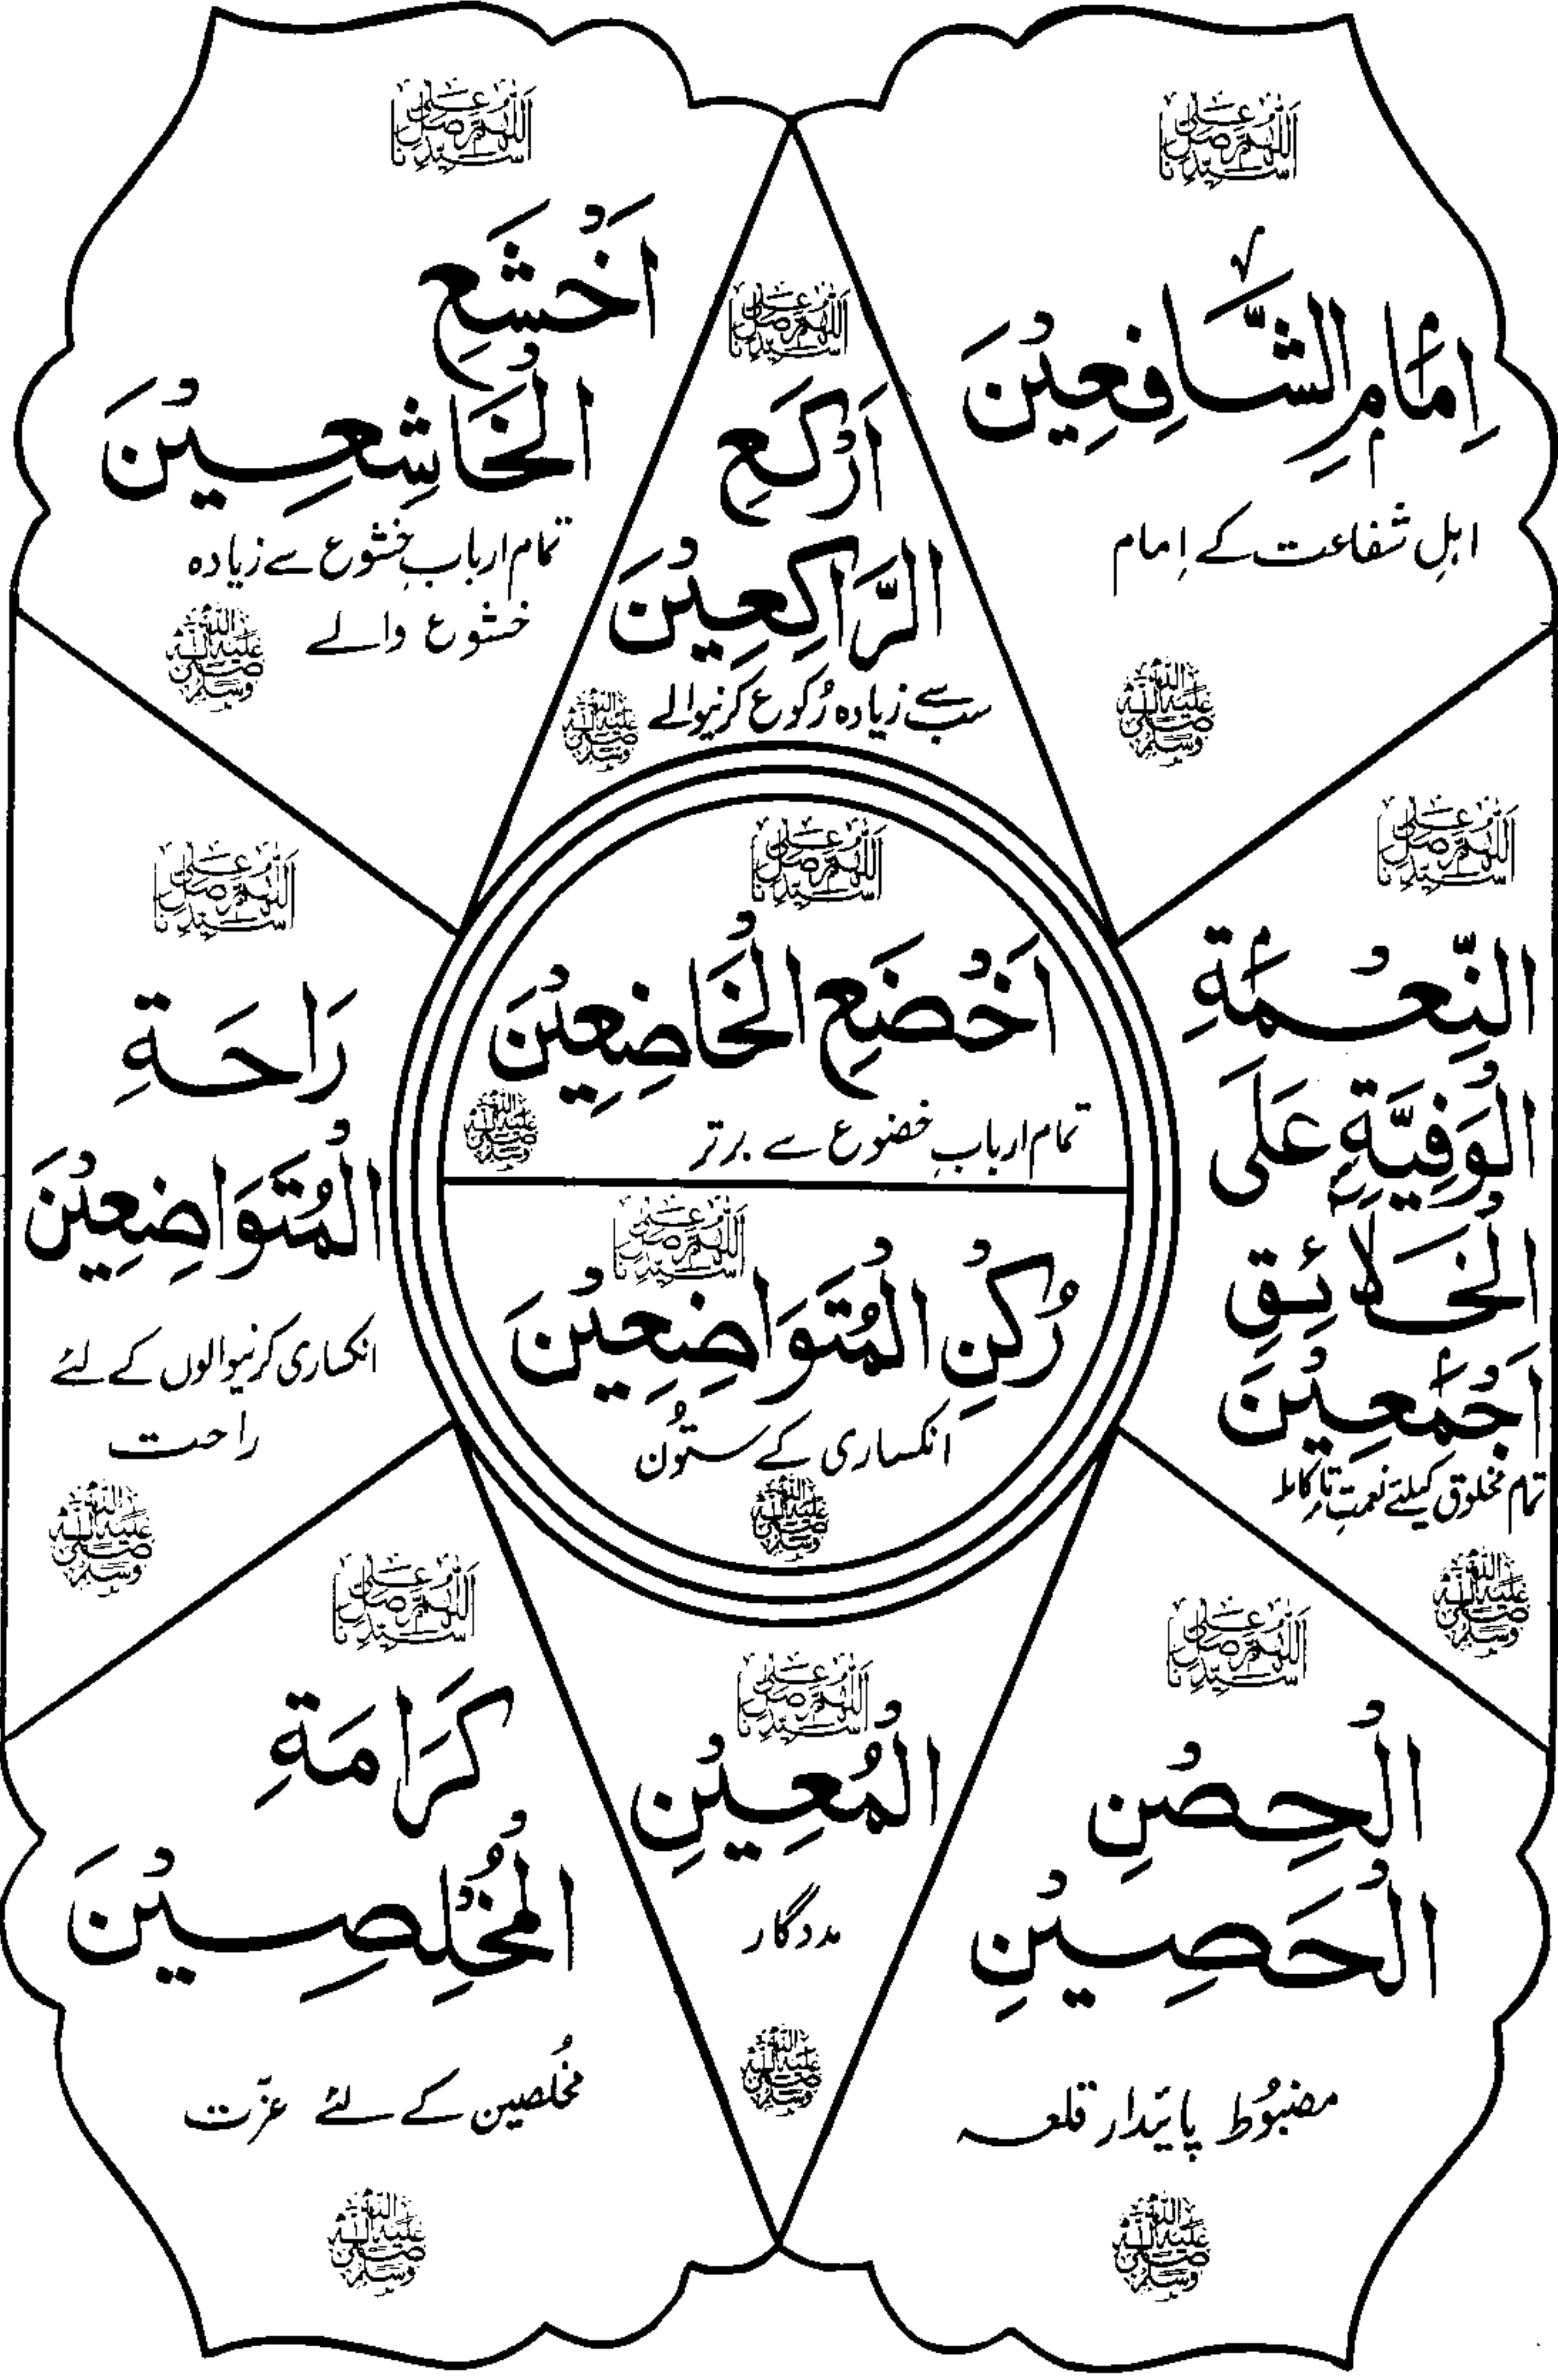 اللهم صل على سيدنا
اِمَامِ الشَّافِعِيْنَ
اہلِ شفاعت کے اِمام
صلى الله عليه وسلم
اللهم صل على سيدنا
اَرْكَعِ
الرَّاكِعِيْنَ
سب سے زیادہ رُکوع کرنیوالے
صلى الله عليه وسلم
اللهم صل على سيدنا
اَخْشَعِ
الْخَاشِعِيْنَ
تمام اربابِ خشوع سے زیادہ
خشوع والے
صلى الله عليه وسلم
اللهم صل على سيدنا
النِّعْمَةِ
الْوَفِيَّةِ عَلَى
الْخَلَائِقِ
اَجْمَعِيْنَ
تمام مخلوق کیلئے نعمتِ کاملہ
صلى الله عليه وسلم
اللهم صل على سيدنا
اَخْضَعِ الْخَاضِعِيْنَ
تمام اربابِ خضوع سے برتر
صلى الله عليه وسلم
اللهم صل على سيدنا
رُكْنِ الْمُتَوَاضِعِيْنَ
انکساری کے ستُون
صلى الله عليه وسلم
اللهم صل على سيدنا
رَاحَةِ
الْمُتَوَاضِعِيْنَ
انکساری کرنیوالوں کے لئے
راحت
صلى الله عليه وسلم
اللهم صل على سيدنا
الْحِصْنِ
الْحَصِيْنِ
مضبُوط پائیدار قلعہ
صلى الله عليه وسلم
اللهم صل على سيدنا
الْمُعِيْنِ
مددگار
صلى الله عليه وسلم
اللهم صل على سيدنا
كَرَامَةِ
الْمُخْلِصِيْنَ
مخُلصین کے لئے عزّت
صلى الله عليه وسلم